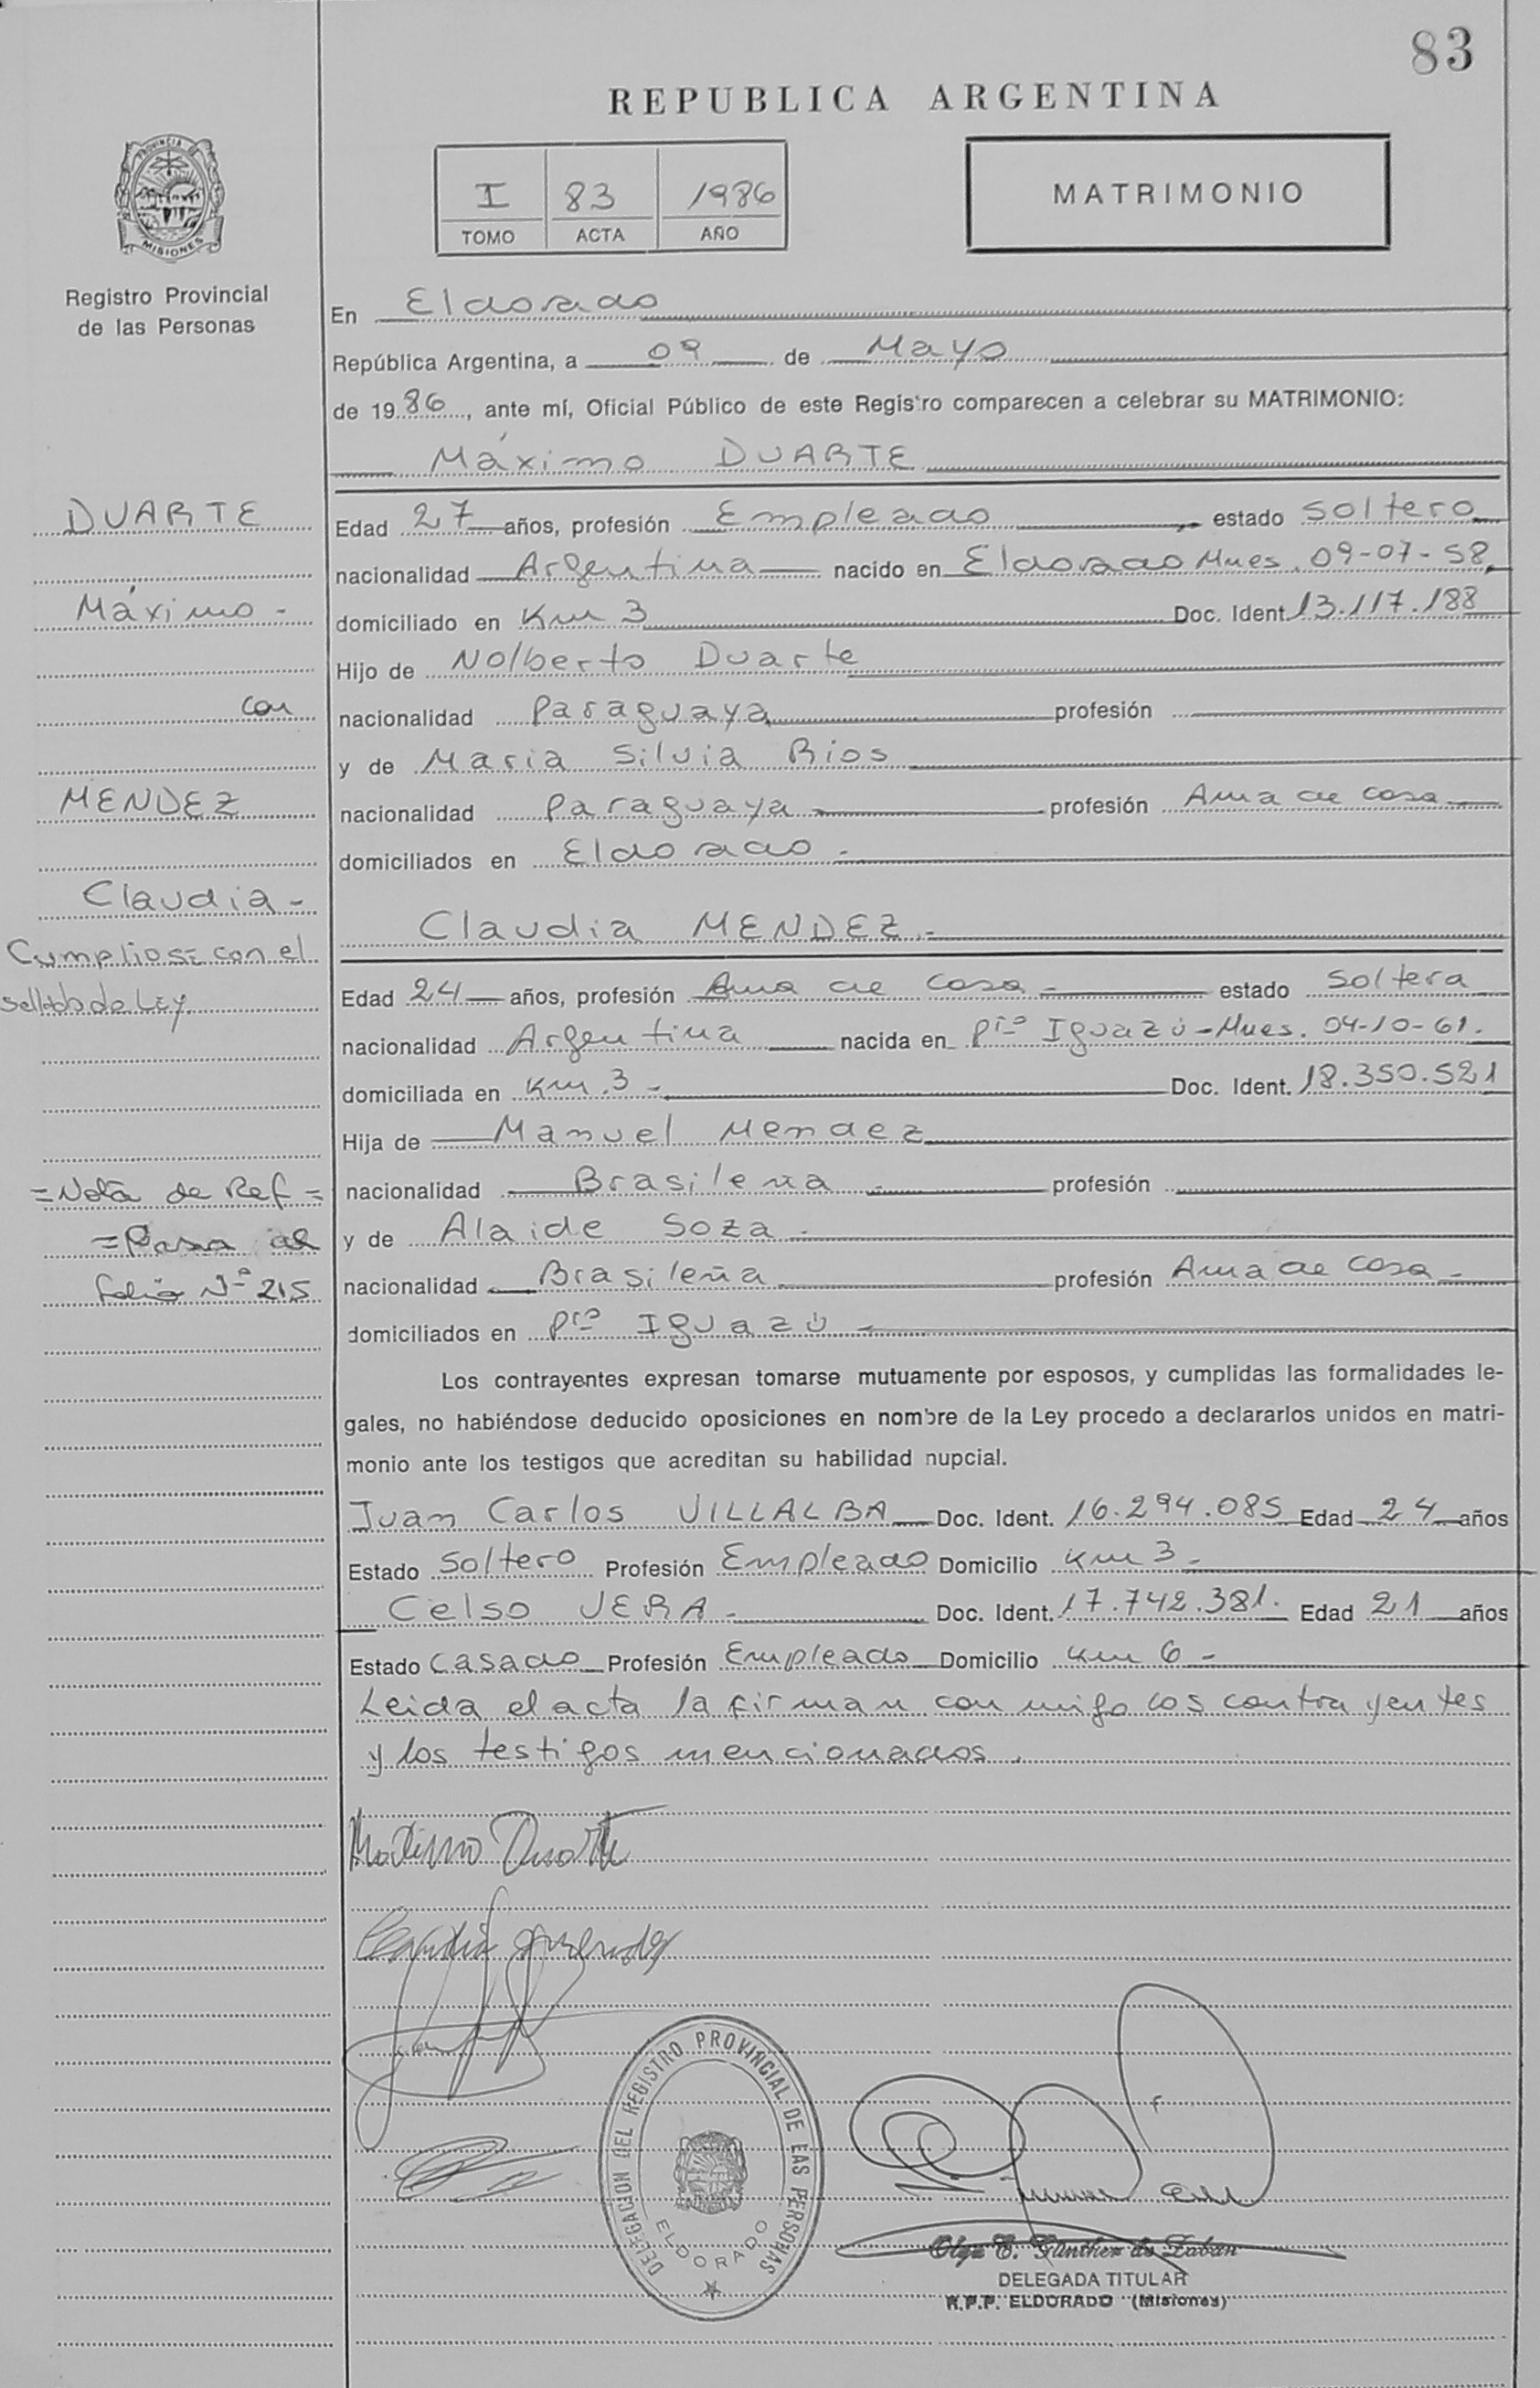 83
REPUBLICA ARGENTINA
PROVINCIA DE
MISIONES
I 83 1986
TOMO ACTA AÑO
MATRIMONIO
Registro Provincial
de las Personas
En Eldorado
República Argentina, a 09 de Mayo
de 1986, ante mí, Oficial Público de este Registro comparecen a celebrar su MATRIMONIO:
Máximo DUARTE
DUARTE
Edad 27 años, profesión Empleado, estado Soltero
nacionalidad Argentina nacido en Eldorado Mnes. 09-07-58,
Máximo-
domiciliado en Km 3 Doc. Ident. 13.117.188
Hijo de Nolberto Duarte
con
nacionalidad Paraguaya profesión
y de Maria Silvia Rios
MENDEZ
nacionalidad Paraguaya profesión Ama de casa
domiciliados en Eldorado-
Claudia-
Claudia MENDEZ.-
Cumpliose con el
sellado de Ley.
Edad 24 años, profesión Ama de casa- estado Soltera
nacionalidad Argentina nacida en Pto Iguazú-Mnes. 04-10-61.
domiciliada en Km.3- Doc. Ident. 18.350.521
Hija de Manuel Mendez
=Nota de Ref=
nacionalidad Brasileña profesión
=Pasa al
y de Alaide Soza-
folio Nº 215
nacionalidad Brasileña profesión Ama de casa-
domiciliados en Pto Iguazú-
Los contrayentes expresan tomarse mutuamente por esposos, y cumplidas las formalidades le-
gales, no habiéndose deducido oposiciones en nombre de la Ley procedo a declararlos unidos en matri-
monio ante los testigos que acreditan su habilidad nupcial.
Juan Carlos VILLALBA Doc. Ident. 16.294.085 Edad 24 años
Estado Soltero Profesión Empleado Domicilio Km 3-
Celso VERA- Doc. Ident. 17.742.381. Edad 21 años
Estado Casado Profesión Empleado Domicilio Km 6-
Leida el acta la firman con migo los contrayentes
y los testigos mencionados.
Maximo Duarte
Claudia Mendez
DELEGACION DEL REGISTRO PROVINCIAL DE LAS PERSONAS
ELDORADO
Olga E. Günther de Zaban
DELEGADA TITULAR
R.P.P. ELDORADO (Misiones)